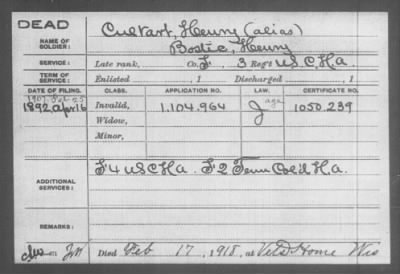 DEAD
NAME OF SOLDIER: Culvart, Henry (alias)
Bostic, Henry
SERVICE: Late rank, Co. F, 3 Reg't U S C H A.
TERM OF SERVICE: Enlisted , 1 Discharged , 1
DATE OF FILING. CLASS. APPLICATION NO. LAW. CERTIFICATE NO.
1907 Feb 25 age
1892 Apr 16 Invalid, 1.104.964 J 1050.239
Widow,
Minor,
ADDITIONAL SERVICES: F 4 U S C H A. F 2 Tenn Col'd H A.
REMARKS:
Died Feb 17, 1918, at Vet's Home Wis